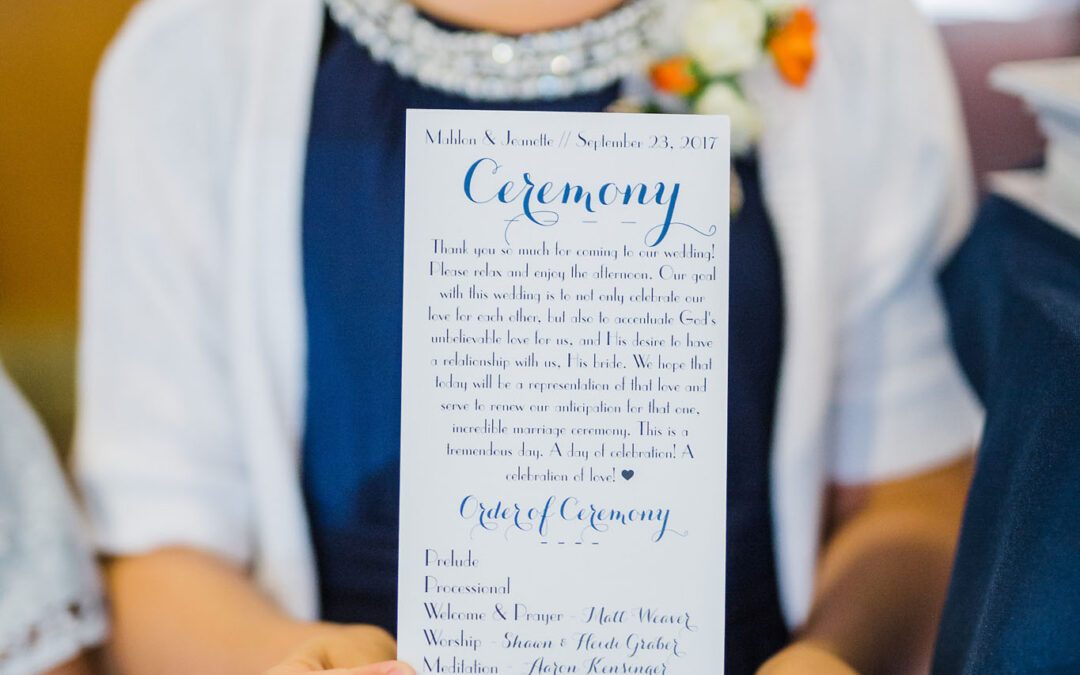 Mahlon & Jeanette // September 23, 2017
Ceremony
Thank you so much for coming to our wedding!
Please relax and enjoy the afternoon. Our goal
with this wedding is to not only celebrate our
love for each other, but also to accentuate God's
unbelievable love for us, and His desire to have
a relationship with us, His bride. We hope that
today will be a representation of that love and
serve to renew our anticipation for that one,
incredible marriage ceremony. This is a
tremendous day. A day of celebration! A
celebration of love! ♥
Order of Ceremony
Prelude
Processional
Welcome & Prayer - Matt Weaver
Worship - Shawn & Heidi Graber
Meditation - Aaron Kensinger